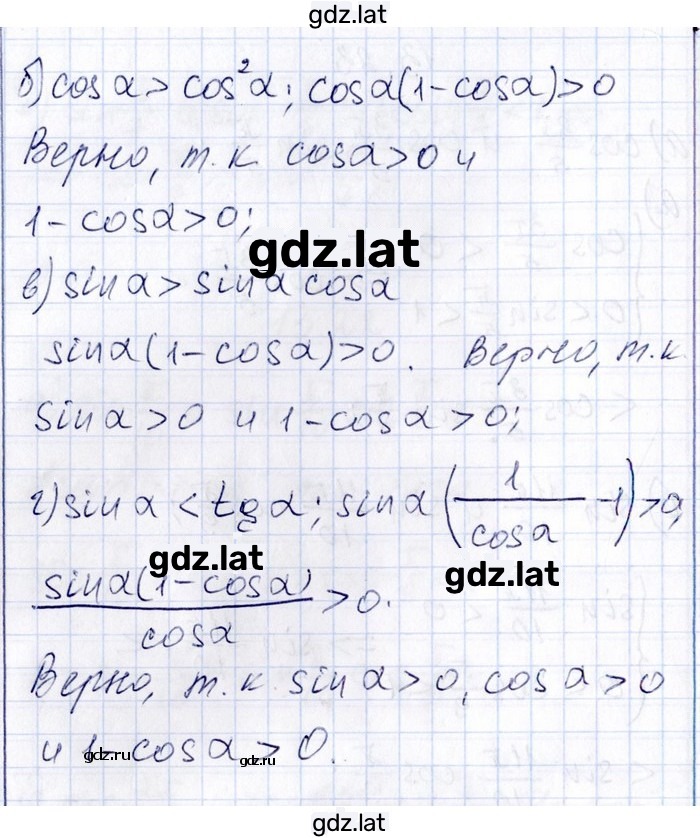 gdz.lat
б) cos α > cos²α; cosα(1-cosα)>0
Верно, т.к. cosα>0 и
1-cosα>0;
gdz.lat
в) sin α > sin α cosα
sinα(1-cosα)>0. Верно, т.к.
sinα>0 и 1-cosα>0;
г) sin α < tg α; sinα(1/cosα -1)>0,
gdz.lat
gdz.lat
sinα(1-cosα)/cosα >0.
Верно, т.к. sin α>0, cosα>0
и 1-cosα>0.
gdz.ru
gdz.ru
gdz.lat